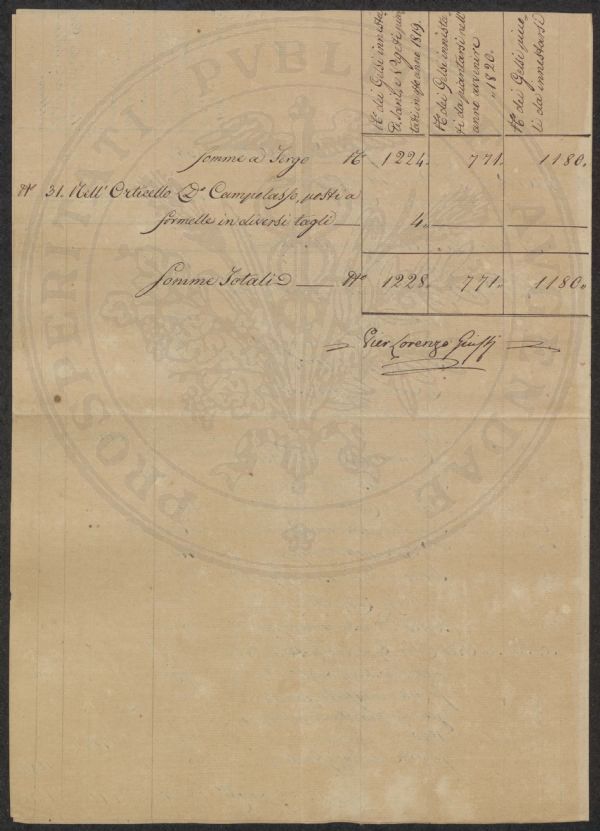 N.o dei Gelsi innesta-
ti, Sani, e Vegeti pian-
tati in d.o anno 1819.
N.o dei Gelsi innesta-
ti da piantarsi nell'
anno avvenire
1820.
N.o dei Gelsi picco-
li da innestarsi
Somme a Tergo N.o 1224. 771. 1180.
N.o 31. Nell' Orticello D.o Campolasso, posti a
formelle in diversi tagli — 4.
Somme Totali — N.o 1228. 771. 1180.
Pier Lorenzo Giusti
PROSPERITATI PVBLICAE AVGENDAE